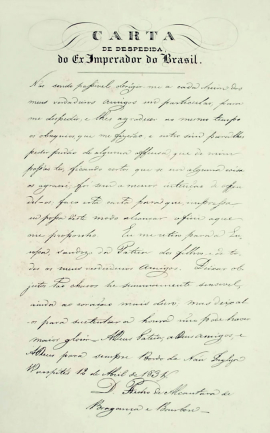 CARTA
DE DESPEDIDA
do Ex Imperador do Brasil.
Não sendo possivel dirigir-me a cada hum dos
meus verdadeiros amigos em particular, para
me despedir, e lhes agradecer ao mesmo tempo
os obsequios que me fizerão e outro sim para lhes
pedir perdão de alguma offensa, que de mim
possão ter, ficando certos que se em alguma coisa
os agravei, foi sem a menor intenção de offen
delos; faço esta carta para que impressa
eu possa deste modo alcançar o fim a que
me proponho. Eu me retiro para a Eu
ropa, saudoso da Patria dos filhos, e de to
dos os meus verdadeiros amigos. Deixar ob
jectos tão caros he summamente sensivel,
ainda ao coração mais duro; mas deixal
os para sustentar a honra não pode haver
maior gloria. Adeus Patria, adeus amigos, e
Adeus para sempre. Bordo da Nau Ingleza
Warspite 12 de Abril de 1831.
D. Pedro de Alcantara de
Bragança e Bourbon